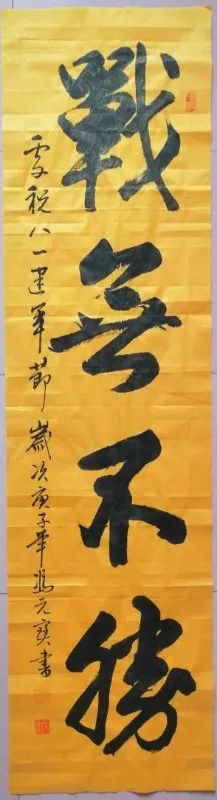 戰無不勝
慶祝八一建軍節歲次庚子年馮元寶書